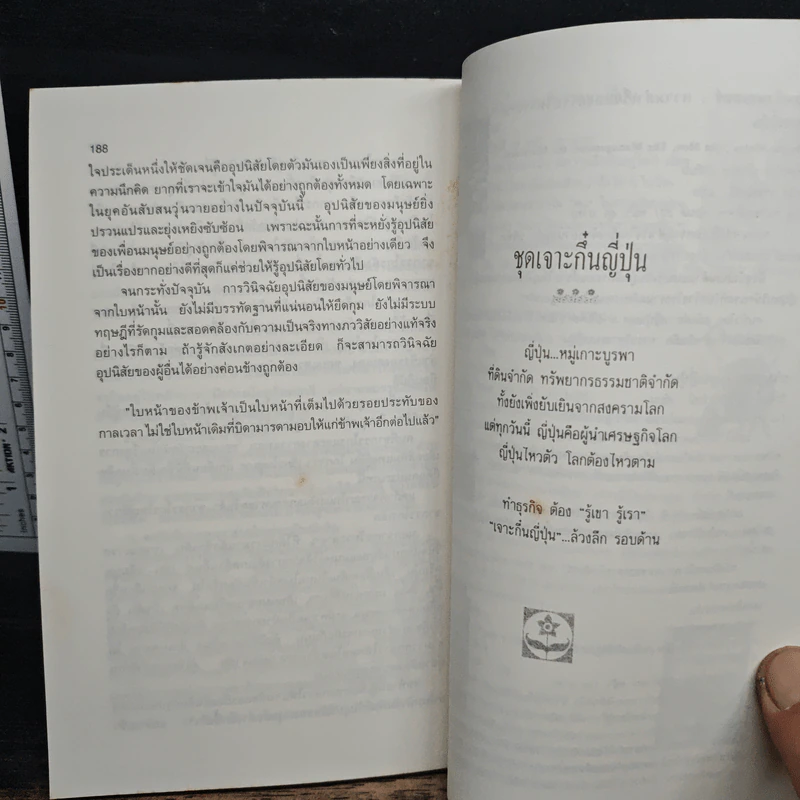 188
ใจประเด็นหนึ่งให้ชัดเจนคืออุปนิสัยโดยตัวมันเองเป็นเพียงสิ่งที่อยู่ใน
ความนึกคิด ยากที่เราจะเข้าใจมันได้อย่างถูกต้องทั้งหมด โดยเฉพาะ
ในยุคอันสับสนวุ่นวายอย่างในปัจจุบันนี้ อุปนิสัยของมนุษย์ยิ่ง
ปรวนแปรและยุ่งเหยิงซับซ้อน เพราะฉะนั้นการที่จะหยั่งรู้อุปนิสัย
ของเพื่อนมนุษย์อย่างถูกต้องโดยพิจารณาจากใบหน้าอย่างเดียว จึง
เป็นเรื่องยากอย่างดีที่สุดก็แค่ช่วยให้รู้อุปนิสัยโดยทั่วไป
จนกระทั่งปัจจุบัน การวินิจฉัยอุปนิสัยของมนุษย์โดยพิจารณา
จากใบหน้านั้น ยังไม่มีบรรทัดฐานที่แน่นอนให้ยึดกุม ยังไม่มีระบบ
ทฤษฎีที่รัดกุมและสอดคล้องกับความเป็นจริงทางภาววิสัยอย่างแท้จริง
อย่างไรก็ตาม ถ้ารู้จักสังเกตอย่างละเอียด ก็จะสามารถวินิจฉัย
อุปนิสัยของผู้อื่นได้อย่างค่อนข้างถูกต้อง
"ใบหน้าของข้าพเจ้าเป็นใบหน้าที่เต็มไปด้วยรอยประทับของ
กาลเวลา ไม่ใช่ใบหน้าเดิมที่บิดามารดามอบให้แก่ข้าพเจ้าอีกต่อไปแล้ว"
ชุดเจาะกึ๋นญี่ปุ่น
ญี่ปุ่น...หมู่เกาะบูรพา
ที่ดินจำกัด ทรัพยากรธรรมชาติจำกัด
ทั้งยังเพิ่งยับเยินจากสงครามโลก
แต่ทุกวันนี้ ญี่ปุ่นคือผู้นำเศรษฐกิจโลก
ญี่ปุ่นไหวตัว โลกต้องไหวตาม
ทำธุรกิจ ต้อง "รู้เขา รู้เรา"
"เจาะกึ๋นญี่ปุ่น"...ล้วงลึก รอบด้าน